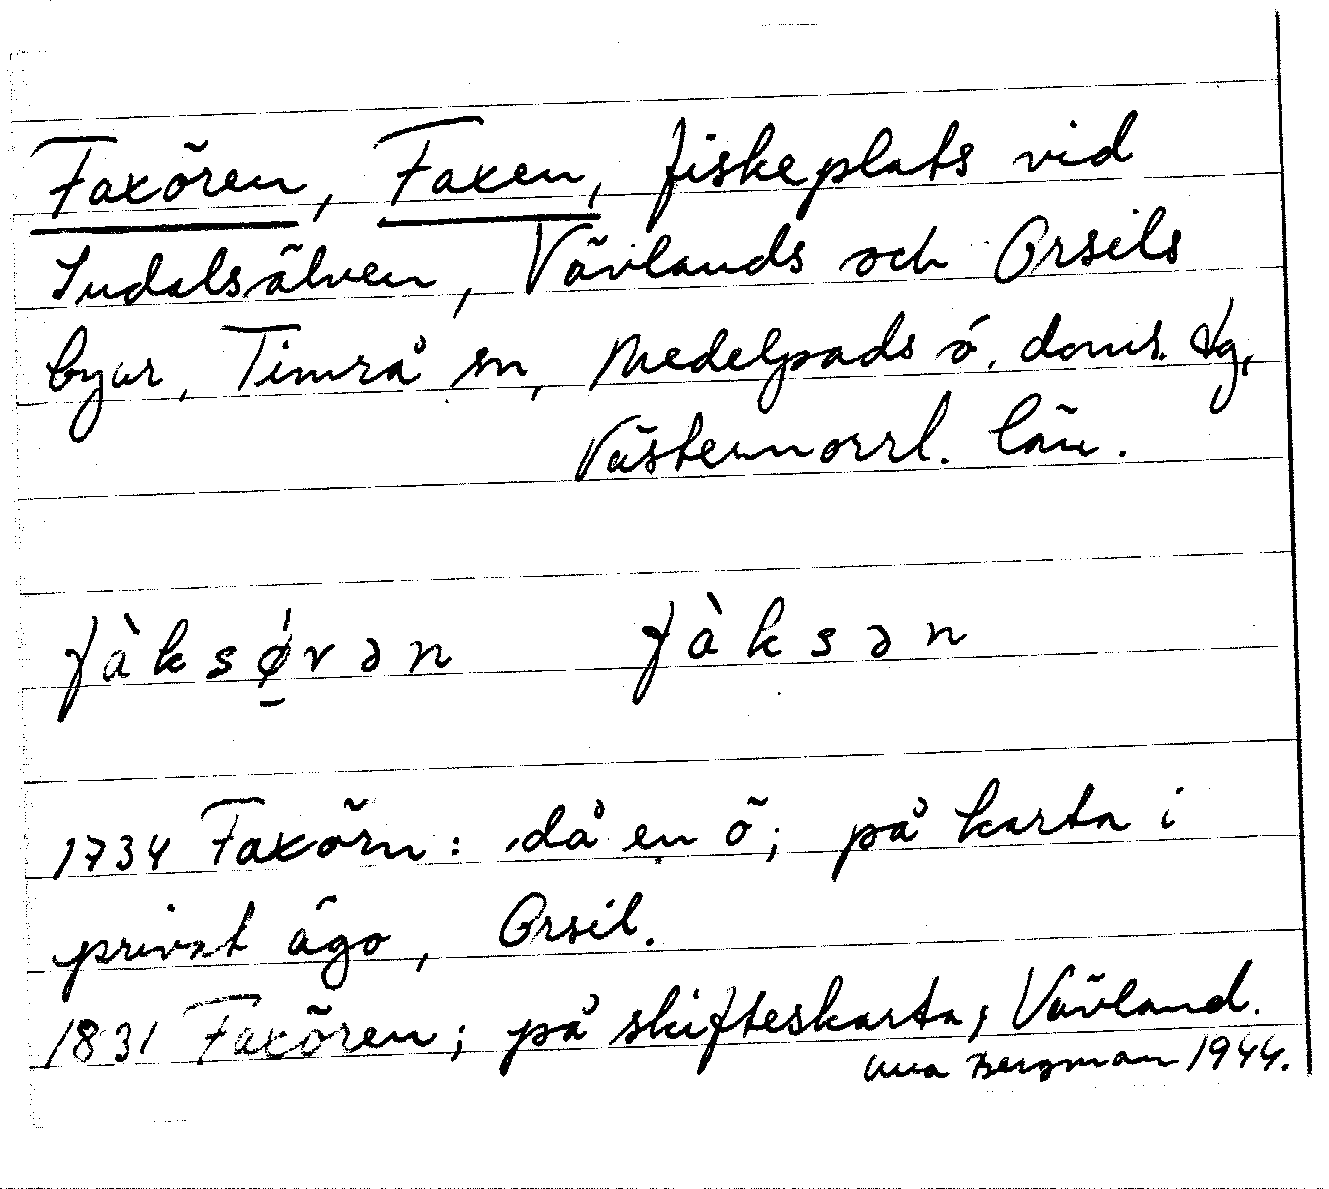 Faxören, Faxen, fiskeplats vid
Indalsälven, Vävlands och Orsils
byar, Timrå sn, Medelpads ö. doms. dg,
Västernorrl. län.
fàksǿ̱rən fàksən
1734 Faxörn: då en ö; på karta i
privat ägo, Orsil.
1831 Faxören; på skifteskarta, Vävland.
Bergman 1944.